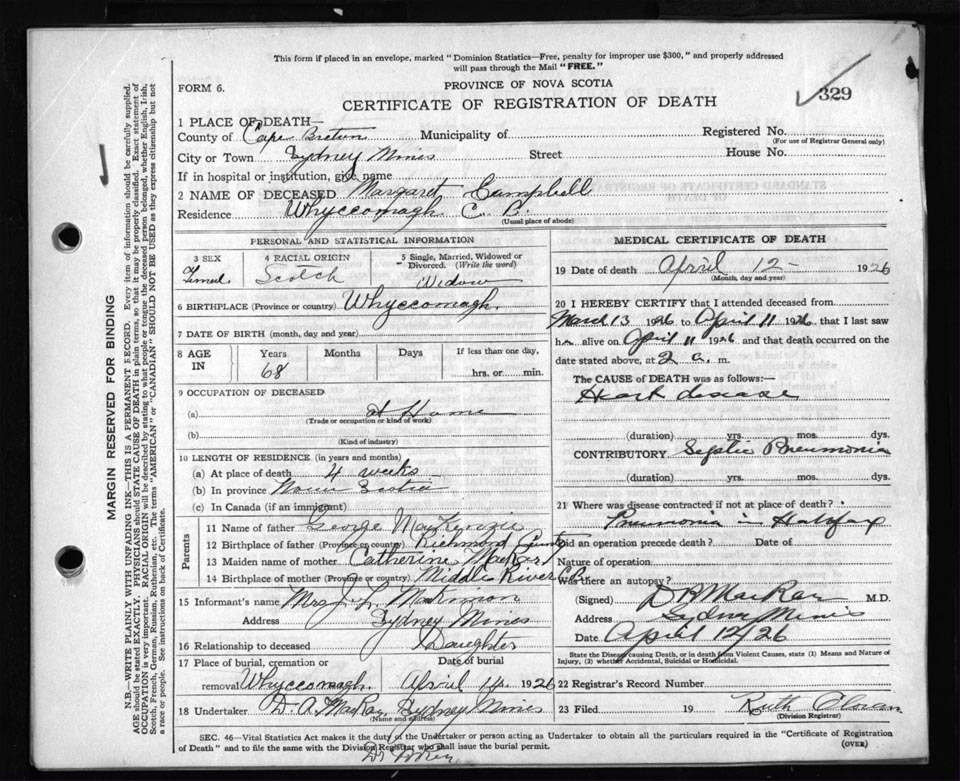 This form if placed in an envelope, marked "Dominion Statistics—Free, penalty for improper use $300," and properly addressed
will pass through the Mail "FREE."
PROVINCE OF NOVA SCOTIA
FORM 6.
CERTIFICATE OF REGISTRATION OF DEATH
329
1 PLACE OF DEATH—
County of Cape Breton Municipality of Registered No.
(For use of Registrar General only)
City or Town Sydney Mines Street House No.
If in hospital or institution, give name
2 NAME OF DECEASED Margaret Campbell
Residence Whycocomagh C. B.
(Usual place of abode)
PERSONAL AND STATISTICAL INFORMATION
3 SEX 4 RACIAL ORIGIN 5 Single, Married, Widowed or
Divorced. (Write the word)
Scotch Widow
6 BIRTHPLACE (Province or country)
7 DATE OF BIRTH (month, day and year)
8 AGE IN Years Months Days If less than one day,
68 hrs. or min.
9 OCCUPATION OF DECEASED
(a) at Home
(Trade or occupation or kind of work)
(b)
(Kind of industry)
10 LENGTH OF RESIDENCE (in years and months)
(a) At place of death 4 weeks
(b) In province Nova Scotia
(c) In Canada (if an immigrant)
Parents
11 Name of father George MacKenzie
12 Birthplace of father (Province or country) Richmond County
13 Maiden name of mother Catherine MacKay
14 Birthplace of mother (Province or country) Middle River C.B.
15 Informant's name Mrs J. L. McKinnon
Address Sydney Mines
16 Relationship to deceased Daughter
17 Place of burial, cremation or Date of burial
removal April 14 1926
18 Undertaker D. A. MacRay Sydney Mines
(Name and address)
MEDICAL CERTIFICATE OF DEATH
19 Date of death April 12 - 1926
(Month, day and year)
20 I HEREBY CERTIFY that I attended deceased from
March 13 1926 to April 11 1926, that I last saw
her alive on April 11 1926 and that death occurred on the
date stated above, at 2 a. m.
The CAUSE OF DEATH was as follows:—
Heart disease
(duration) yrs. mos. dys.
CONTRIBUTORY. Septic Pneumonia
(duration) yrs. mos. dys.
21 Where was disease contracted if not at place of death?
Pneumonia in Halifax
Did an operation precede death? Date of
Nature of operation
Was there an autopsy?
(Signed) MacRae M.D.
Address Sydney Mines
Date April 12/26
State the Disease causing Death, or in death from Violent Causes, state (1) Means and Nature of
Injury, (2) whether Accidental, Suicidal or Homicidal.
22 Registrar's Record Number
23 Filed 19 Ruth
(Division Registrar)
SEC. 46—Vital Statistics Act makes it the duty of the Undertaker or person acting as Undertaker to obtain all the particulars required in the "Certificate of Registration
of Death" and to file the same with the Division Registrar who shall issue the burial permit. (OVER)
MARGIN RESERVED FOR BINDING
N.B.—WRITE PLAINLY WITH UNFADING INK—THIS IS A PERMANENT RECORD. Every item of information should be carefully supplied.
AGE should be stated EXACTLY. PHYSICIANS should STATE CAUSE OF DEATH in plain terms, so that it may be properly classified. Exact statement of
OCCUPATION is very important. RACIAL ORIGIN will be described by stating to what people or tongue the deceased person belonged, whether English, Irish,
Scotch, French, German, Russian, Ruthenian, etc. The terms "AMERICAN" or "CANADIAN" SHOULD NOT BE USED as they express citizenship but not
a race or people. See instructions on back of Certificate.